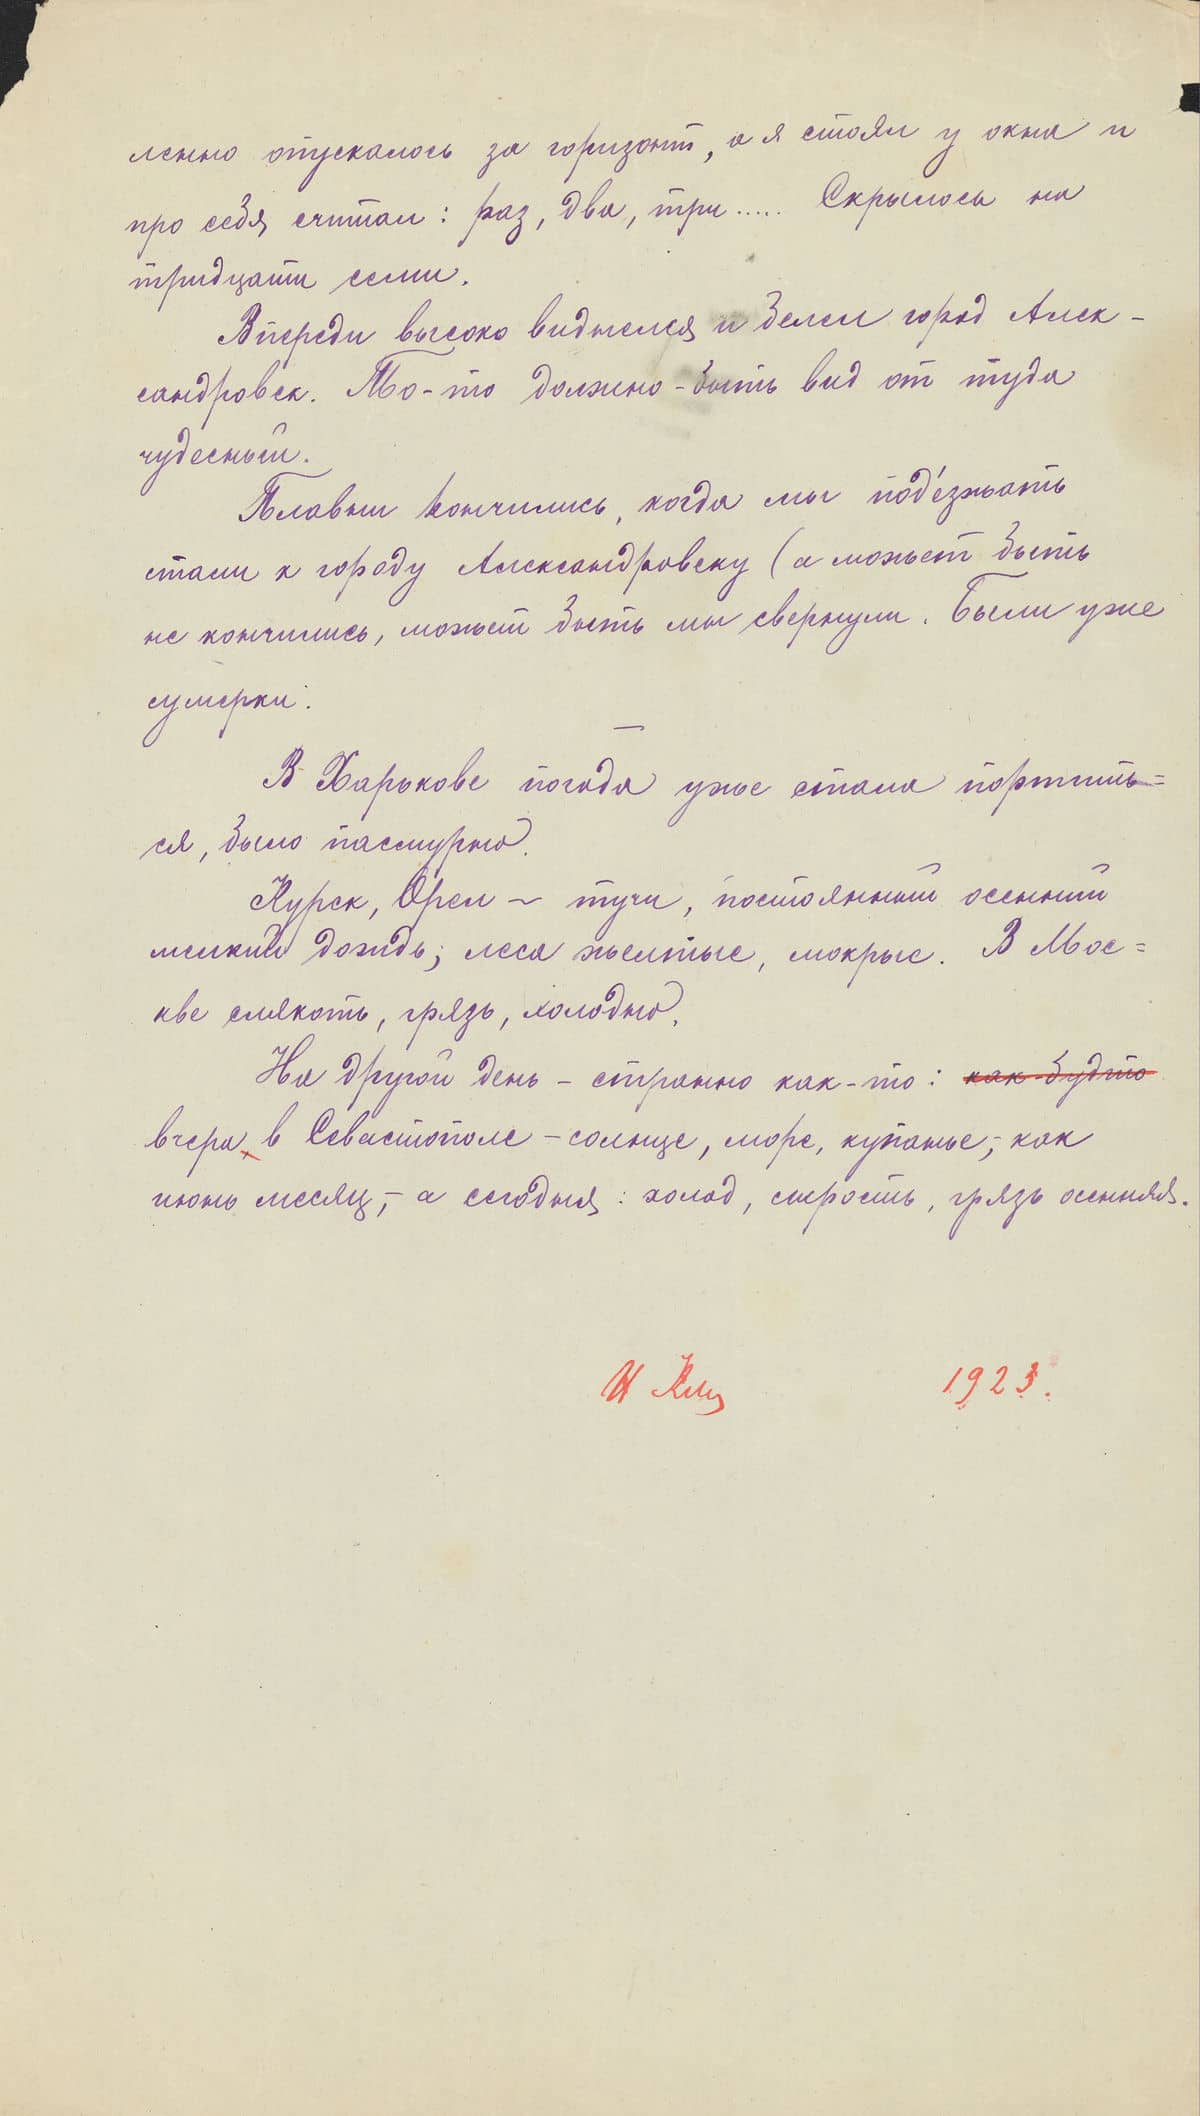 ленно опускалось за горизонт, а я стоял у окна и
про себя считал: раз, два, три..... Скрылось на
тридцати семи.
Впереди высоко виднелся и белел город Алек-
сандровск. То-то должно-быть вид от туда
чудесный.
Плавни кончились, когда мы под'езжать
стали к городу Александровску (а может быть
не кончились, может быть мы свернули. Были уже
сумерки.
—
В Харькове погода уже стала портить=
ся, было пасмурно.
Курск, Орел – тучи, постоянный осенний
мелкий дождь; леса желтые, мокрые. В Мос=
кве слякоть, грязь, холодно.
На другой день – странно как-то: как будто
вчера, в Севастополе – солнце, море, купанье, – как
июнь месяц, – а сегодня: холод, сырость, грязь осенняя.
И Клю 1923.